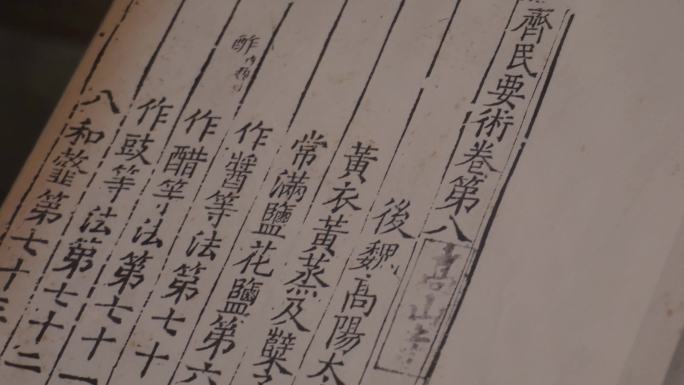 齊民要術卷第八
後魏高陽太
黃衣黃蒸及櫱
常滿鹽花鹽第六
作醬等法第七十
作醋等法第七十一
作豉等法第七十二
八和虀第七十三